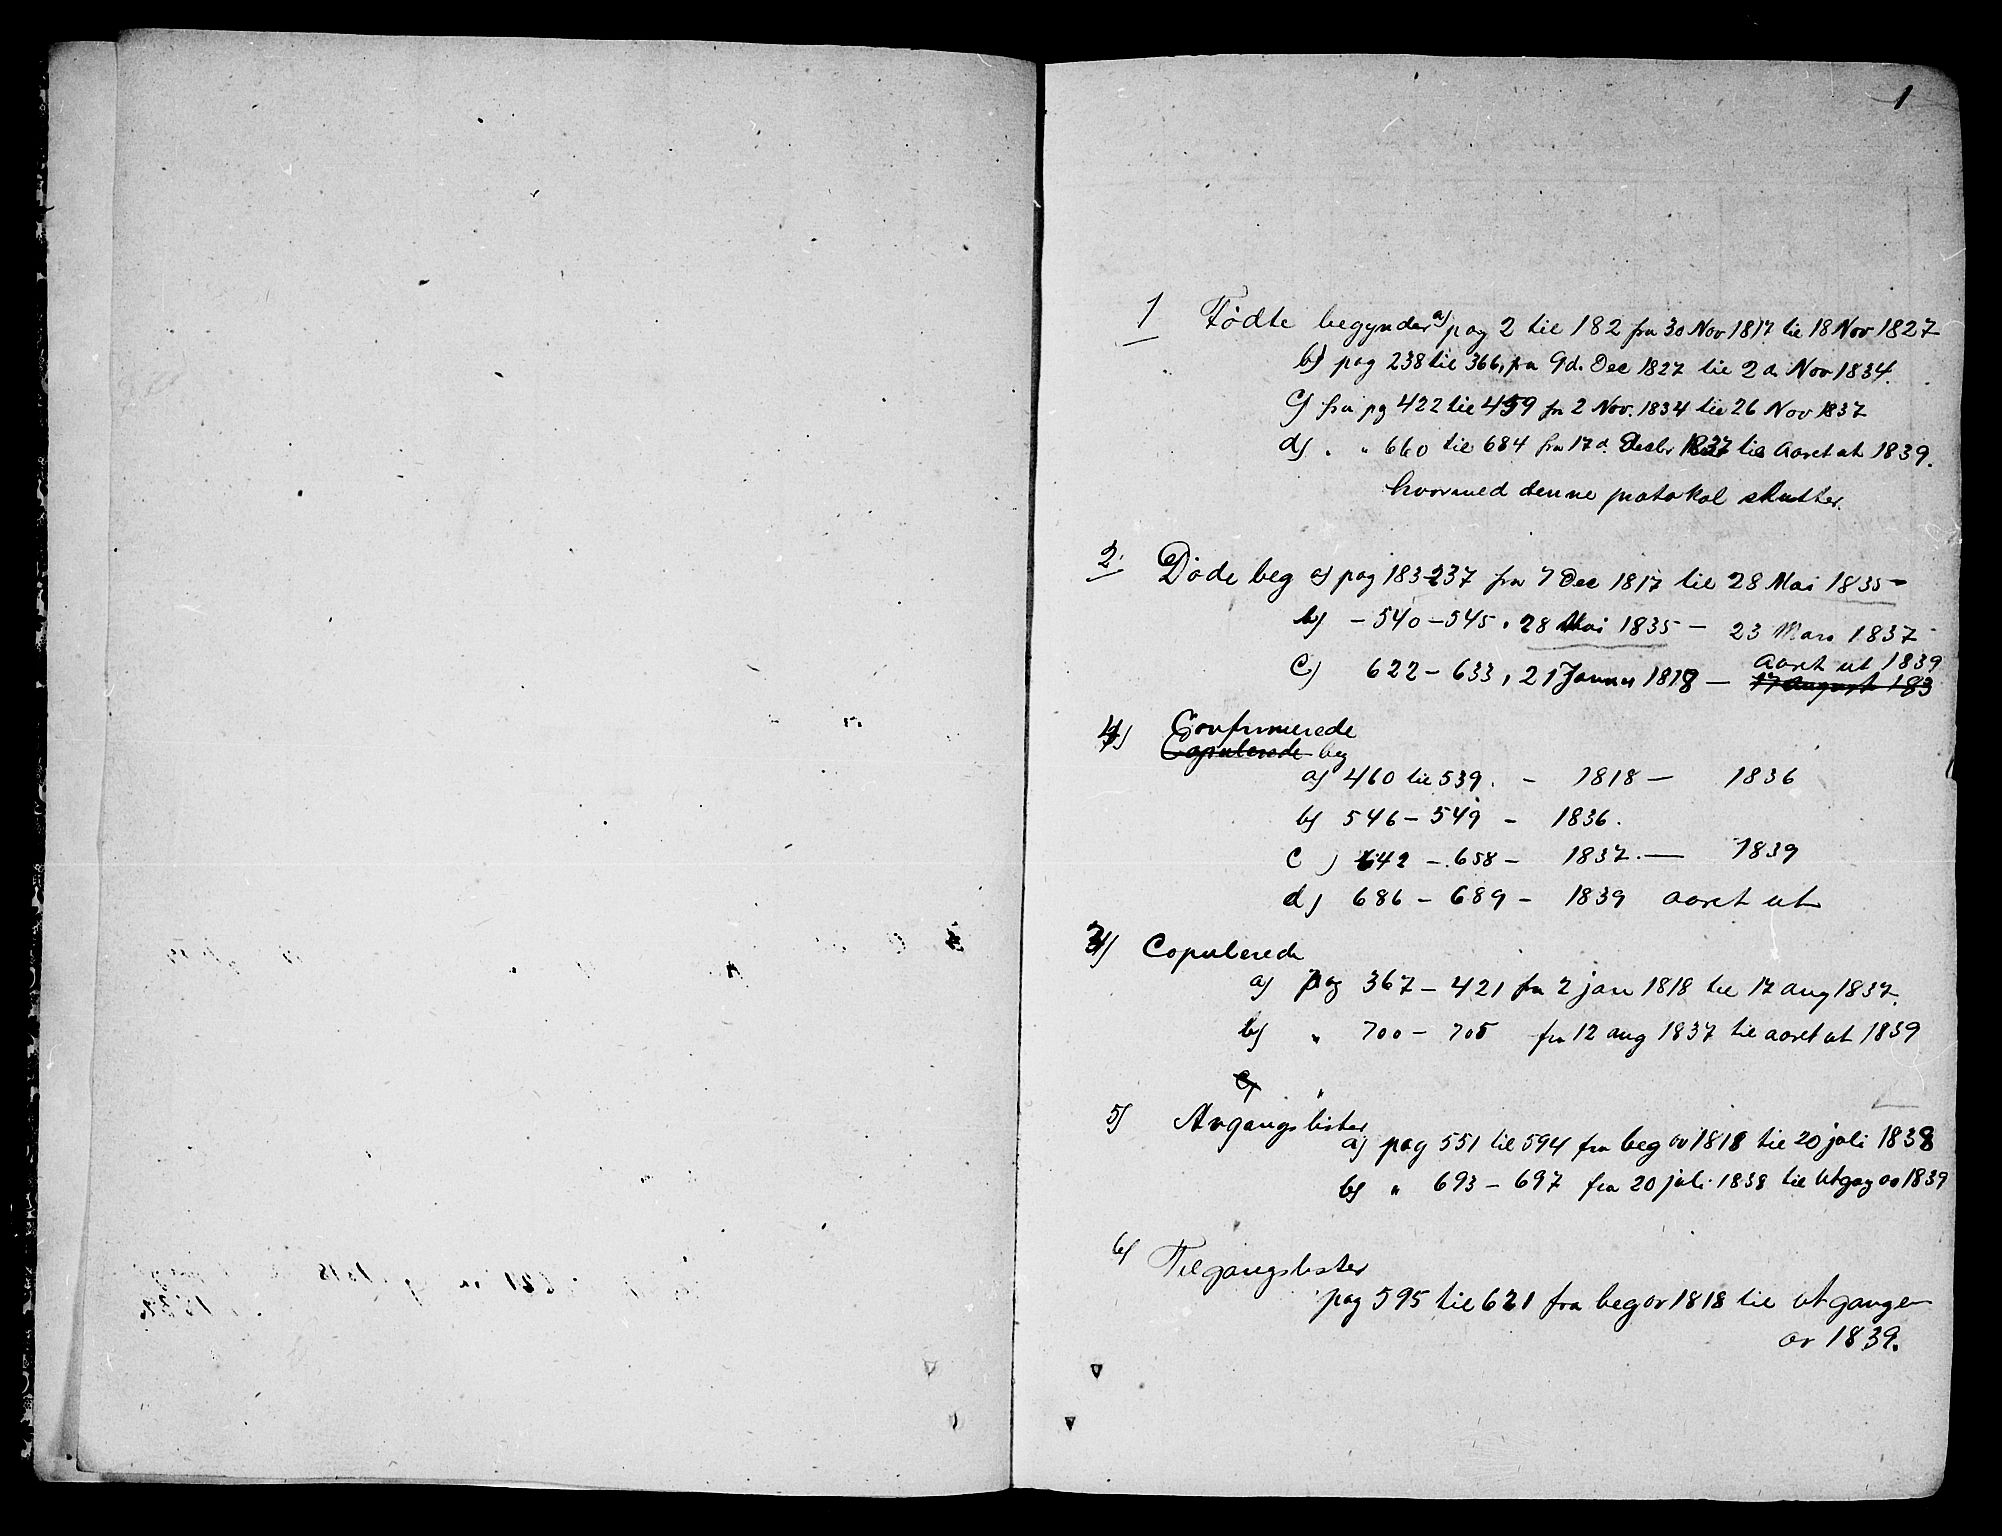 1
1 Fødte begynder a) pag 2 til 182 fra 30 Nov 1817 til 18 Nov 1827
b) pag 238 til 366, fra 9d. Dec 1827 til 2 d. Nov 1834.
c) fra pg 422 til 459 fr 2 Nov. 1834 til 26 Nov 1837
d) " " 660 til 684 fra 17 d. Decbr 1837 til Aaret ut 1839.
hvormed denne protokol slutter.
2. Døde beg a) pag 183-237 fra 7 Dec 1817 til 28 Mai 1835-
b) - 540-545, 28 Mai 1835 - 23 Mars 1837
aaret ut 1839
c) 622-633, 21 Januar 1818 - 17 august 183
4) Confirmerede
Copulerede beg
a) 460 til 539. - 1818 - 1836
b) 546-549 - 1836.
c) 642-658- 1837.- 1839
d) 686-689- 1839 aaret ut
3) Copulerede
a) pag 367-421 fra 2 jan 1818 til 17 aug 1837.
b) " 700-705 fra 12 aug 1837 til aaret ut 1839
c) "
5) Avgangslister
a) pag 551 til 594 fra beg av 1818 til 20 juli 1838
b) " 693-697 fra 20 juli 1838 til utgag av 1839
6) Tilgangslister
pag 595 til 621 fra beg av 1818 til utgangen
av 1839.